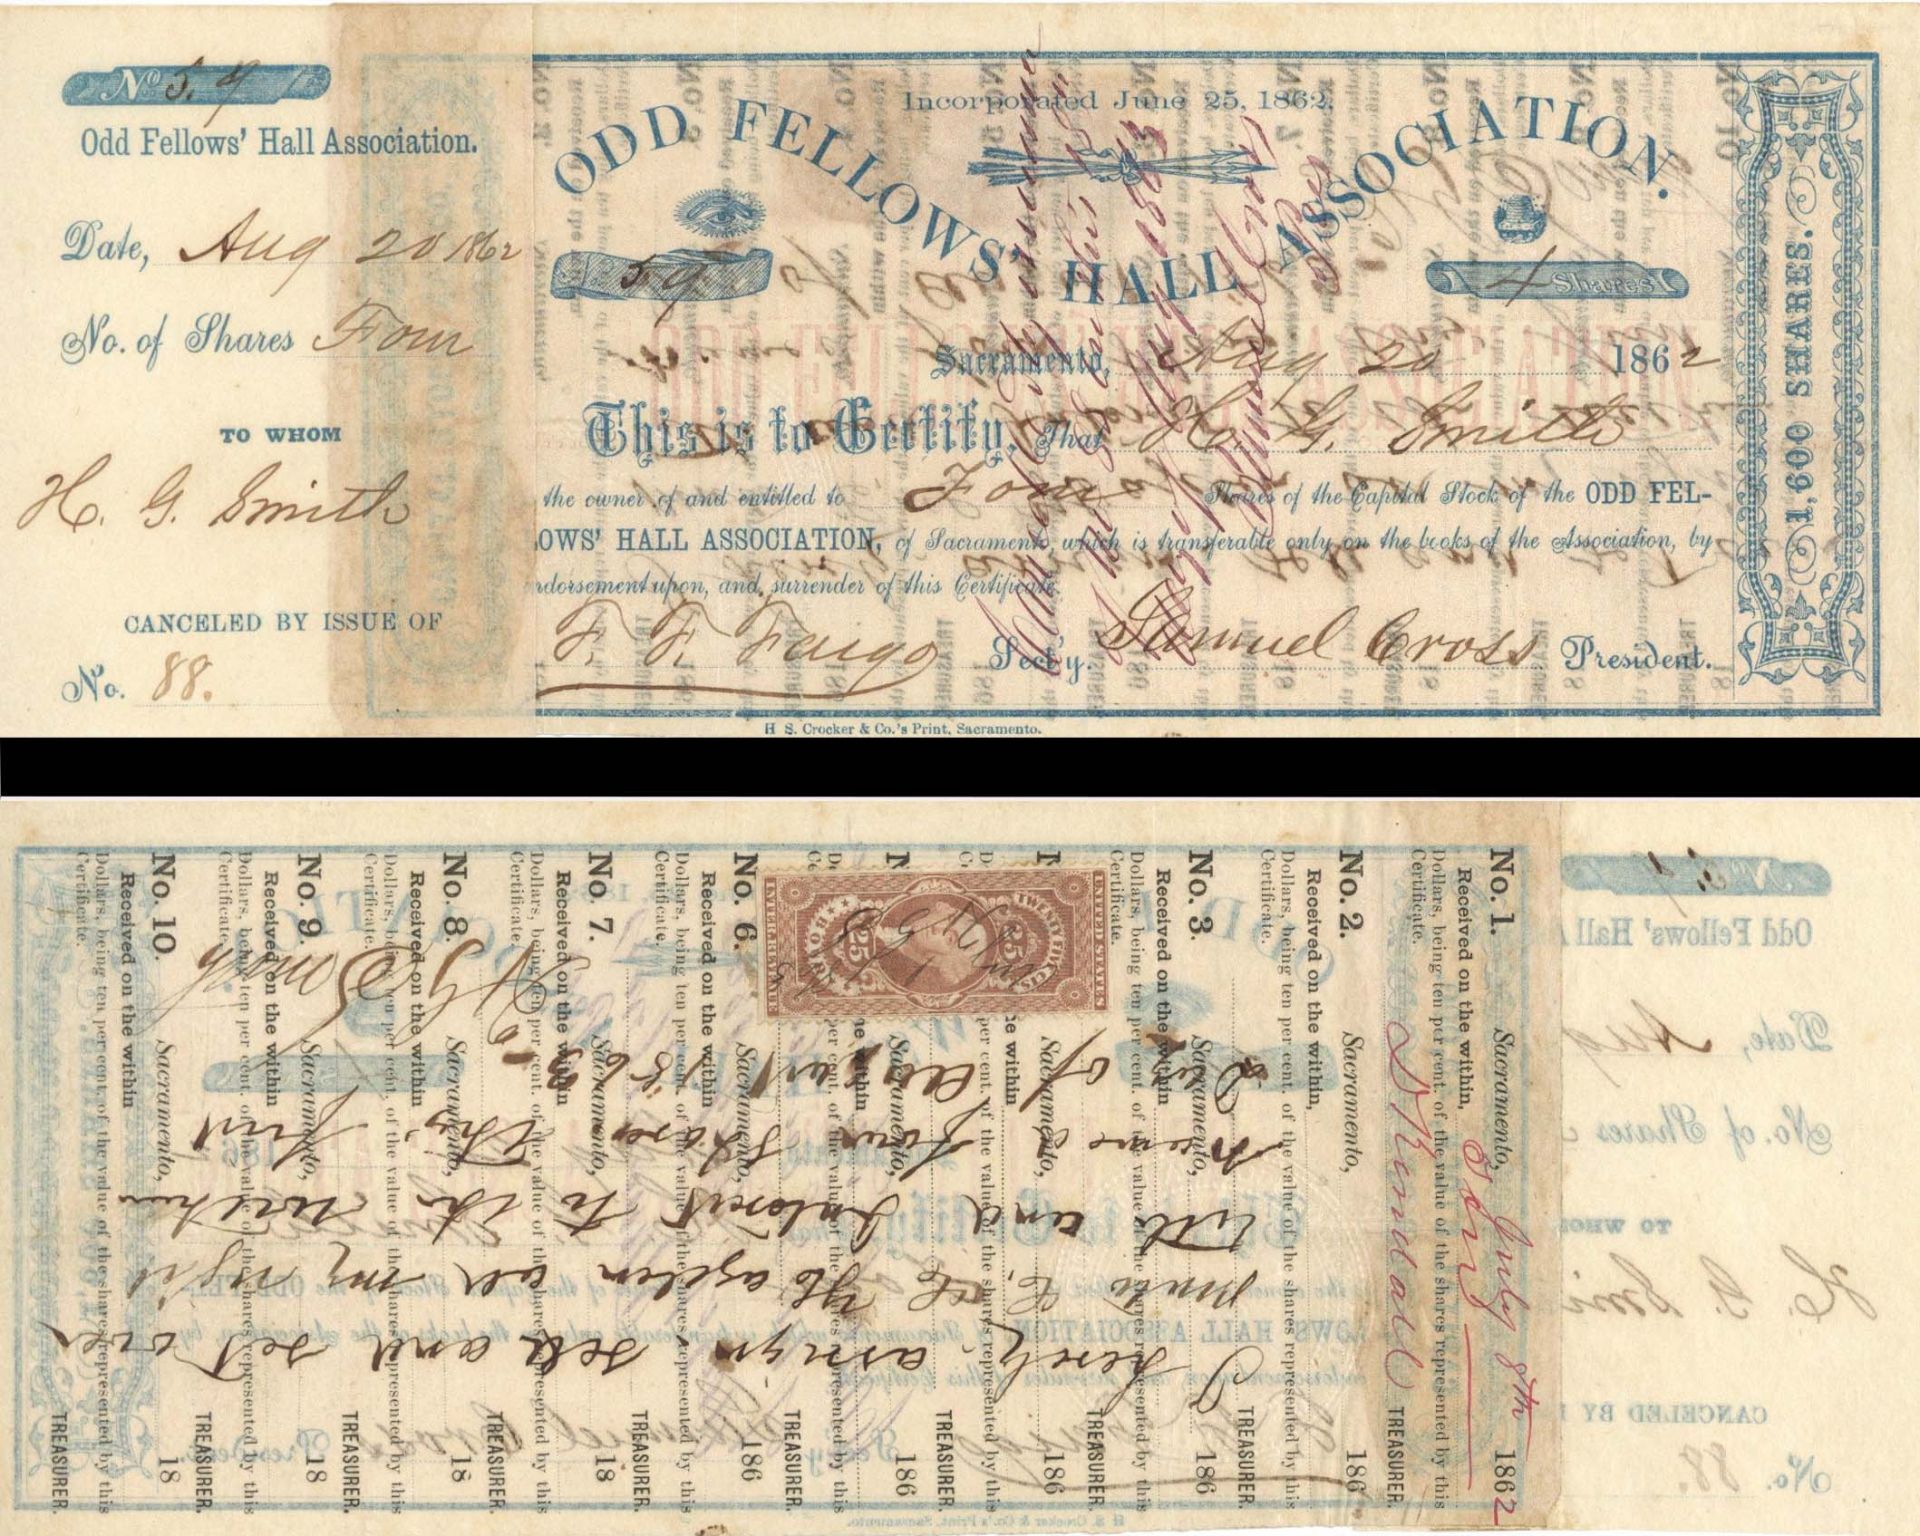 No 59
Odd Fellows' Hall Association.
Date, Aug 20 1862
No. of Shares Four
TO WHOM
H. G. Smith
CANCELED BY ISSUE OF
No. 88.
Incorporated June 25, 1862.
ODD FELLOWS' HALL ASSOCIATION.
59
4 Shares
Sacramento, Aug 20 1862
This is to Certify, That H. G. Smith
the owner of and entitled to Four Shares of the Capital Stock of the ODD FEL-
OWS' HALL ASSOCIATION, of Sacramento, which is transferable only on the books of the Association, by
ndorsement upon, and surrender of this Certificate.
F. F. Fargo Sect'y. Samuel Cross President.
1,600 SHARES.
H S. Crocker & Co.'s Print, Sacramento.
No. 1. Sacramento, July 8th 1862
Received on the within,
Dollars, being ten per cent. of the value of the shares represented by this
Certificate.
TREASURER.
No. 2. Sacramento, 186
Received on the within,
Dollars, being ten per cent. of the value of the shares represented by this
Certificate.
TREASURER.
No. 3. Sacramento, 186
Received on the within
Dollars, being ten per cent. of the value of the shares represented by this
Certificate.
TREASURER.
Sacramento, 186
within
per cent. of the value of the shares represented by this
TREASURER.
Sacramento, 186
the within
per cent. of the value of the shares represented by this
TREASURER.
No. 6. Sacramento, 186
Received on the within
Dollars, being ten per cent. of the value of the shares represented by this
Certificate.
TREASURER.
No. 7. Sacramento, 18
Received on the within
Dollars, being ten per cent. of the value of the shares represented by this
Certificate.
TREASURER.
No. 8. Sacramento, 18
Received on the within
Dollars, being ten per cent. of the value of the shares represented by this
Certificate.
TREASURER.
No. 9. Sacramento, 18
Received on the within
Dollars, being ten per cent. of the value of the shares represented by this
Certificate.
TREASURER.
No. 10. Sacramento, 18
Received on the within
Dollars, being ten per cent. of the value of the shares represented by this
Certificate.
TREASURER.
UNITED STATES
TWENTY FIVE CTS
25 25
INTER. REVENUE
I hereby assign sell and set over
unto
all my right
title and Interest to the within
named four Shares this first
day of August 1863
H G Smith